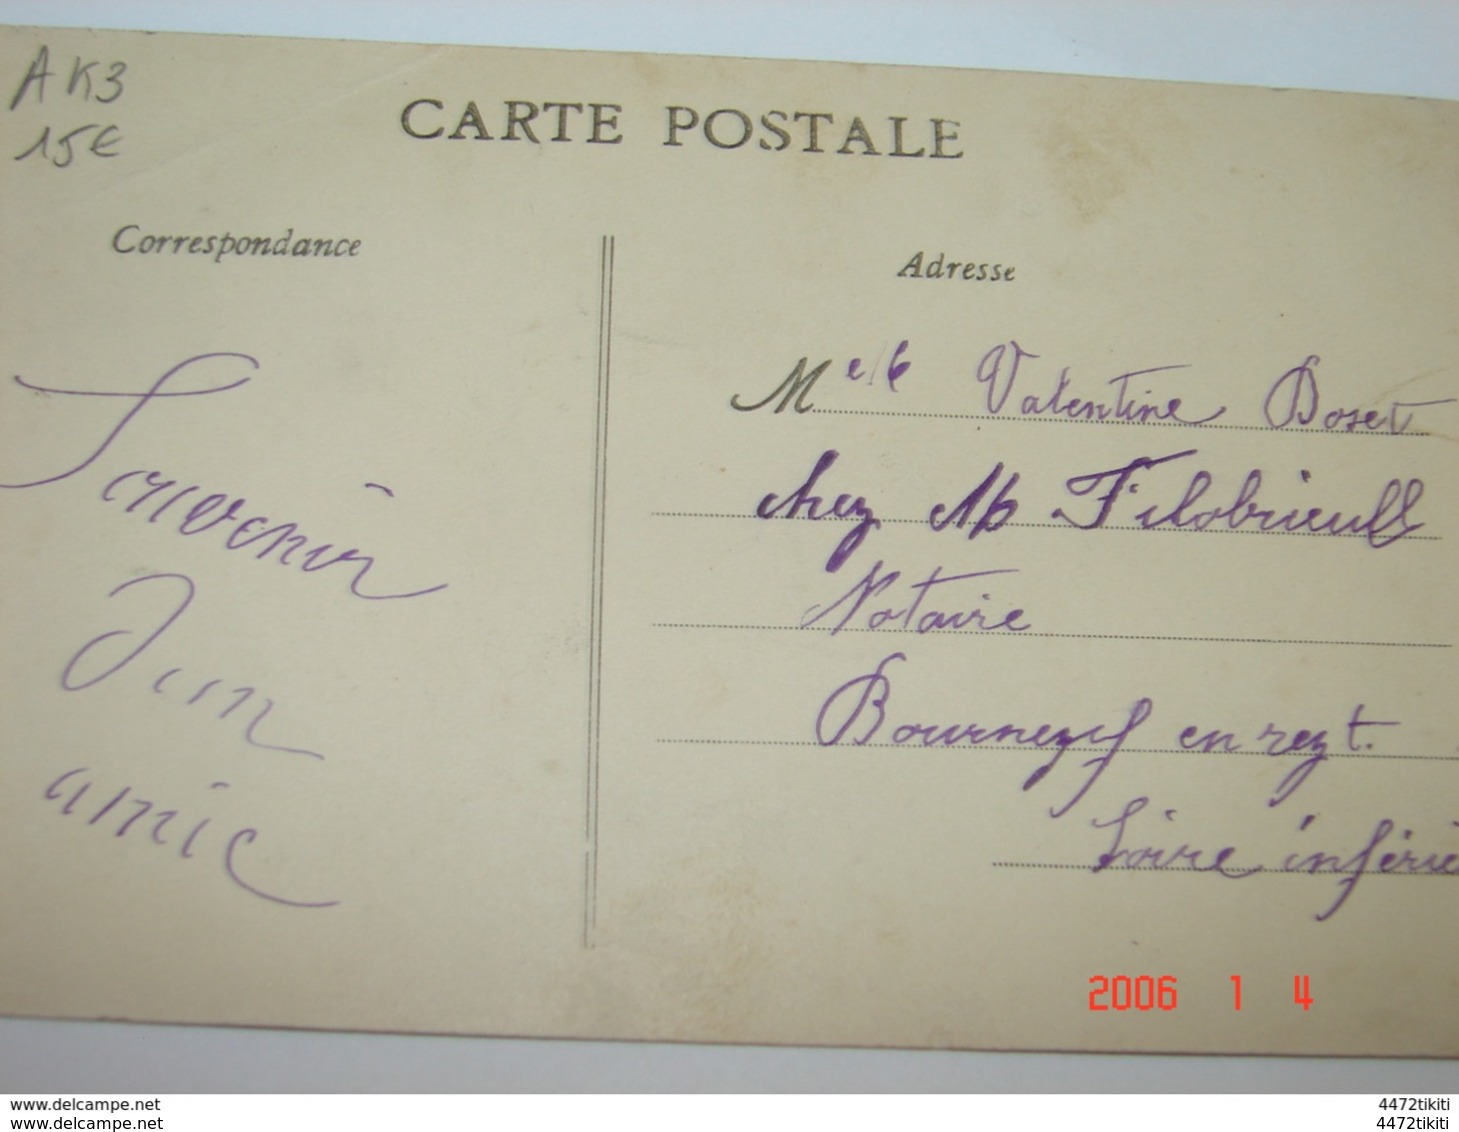 AK3
15€
CARTE POSTALE
Correspondance
Souvenir
d'un
amie
Adresse
Melle Valentine Boset
chez Mr Filobrieull
Notaire
Bournezy en rezt.
Loire inférie
2006 1 4
www.delcampe.net
www.delcampe.net
4472tikiti
4472tikiti